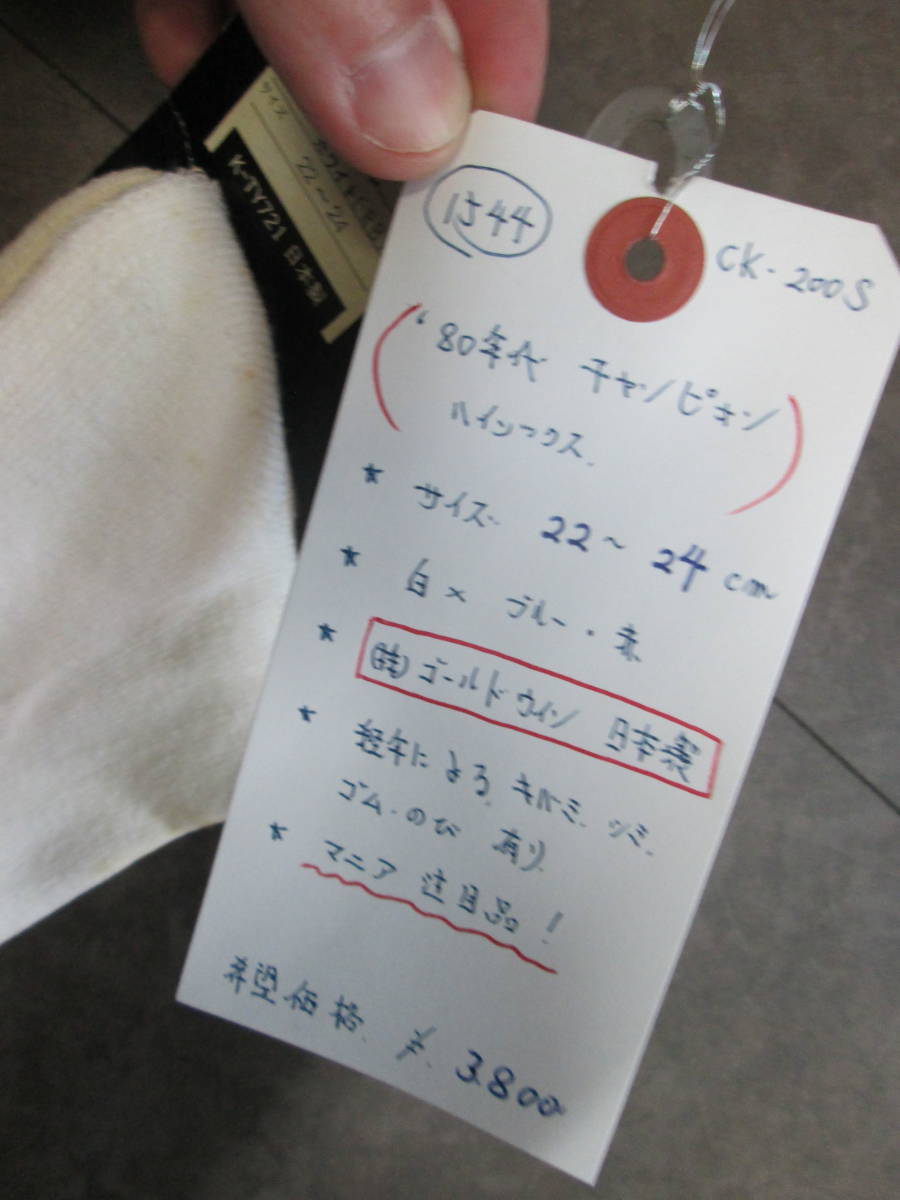 サイズ
22〜24
K-TY721 日本製
1544
CK-200S
'80年代 チャンピオン
ハイソックス.
★ サイズ 22〜24cm
★ 白× ブルー・赤
★ (株)ゴールドウイン 日本製
★ 経年による キバミ. シミ.
ゴム.のび 有り
★ マニア 注目品!
希望価格. ¥.3.800